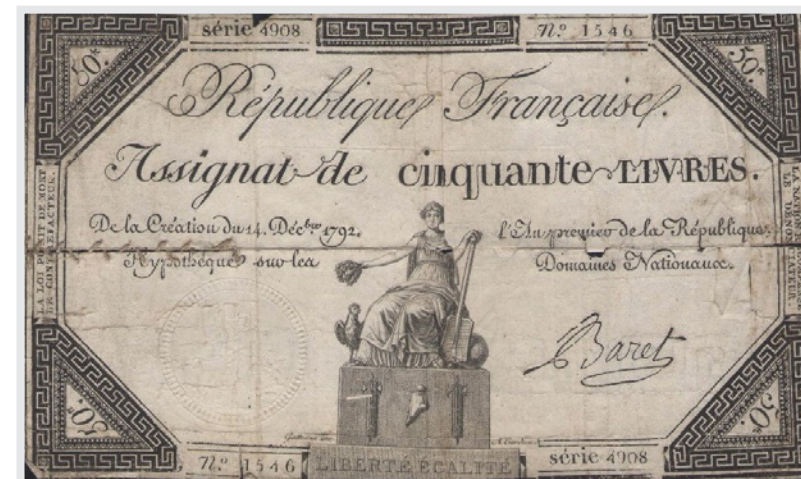 série 4908
N.º 1546
50.ᵗ
50.ᵗ
République Française.
Assignat de cinquante LIVRES.
De la Création du 14. Décᵇʳᵉ 1792.
l'An premier de la République.
Hypothéqué sur les
Domaines Nationaux.
LA LOI PUNIT DE MORT
LE CONTREFACTEUR.
LA NATION
LE DÉNONCIATEUR.
Baret
50.ᵗ
50.ᵗ
N.º 1546
LIBERTÉ EGALITÉ
série 4908